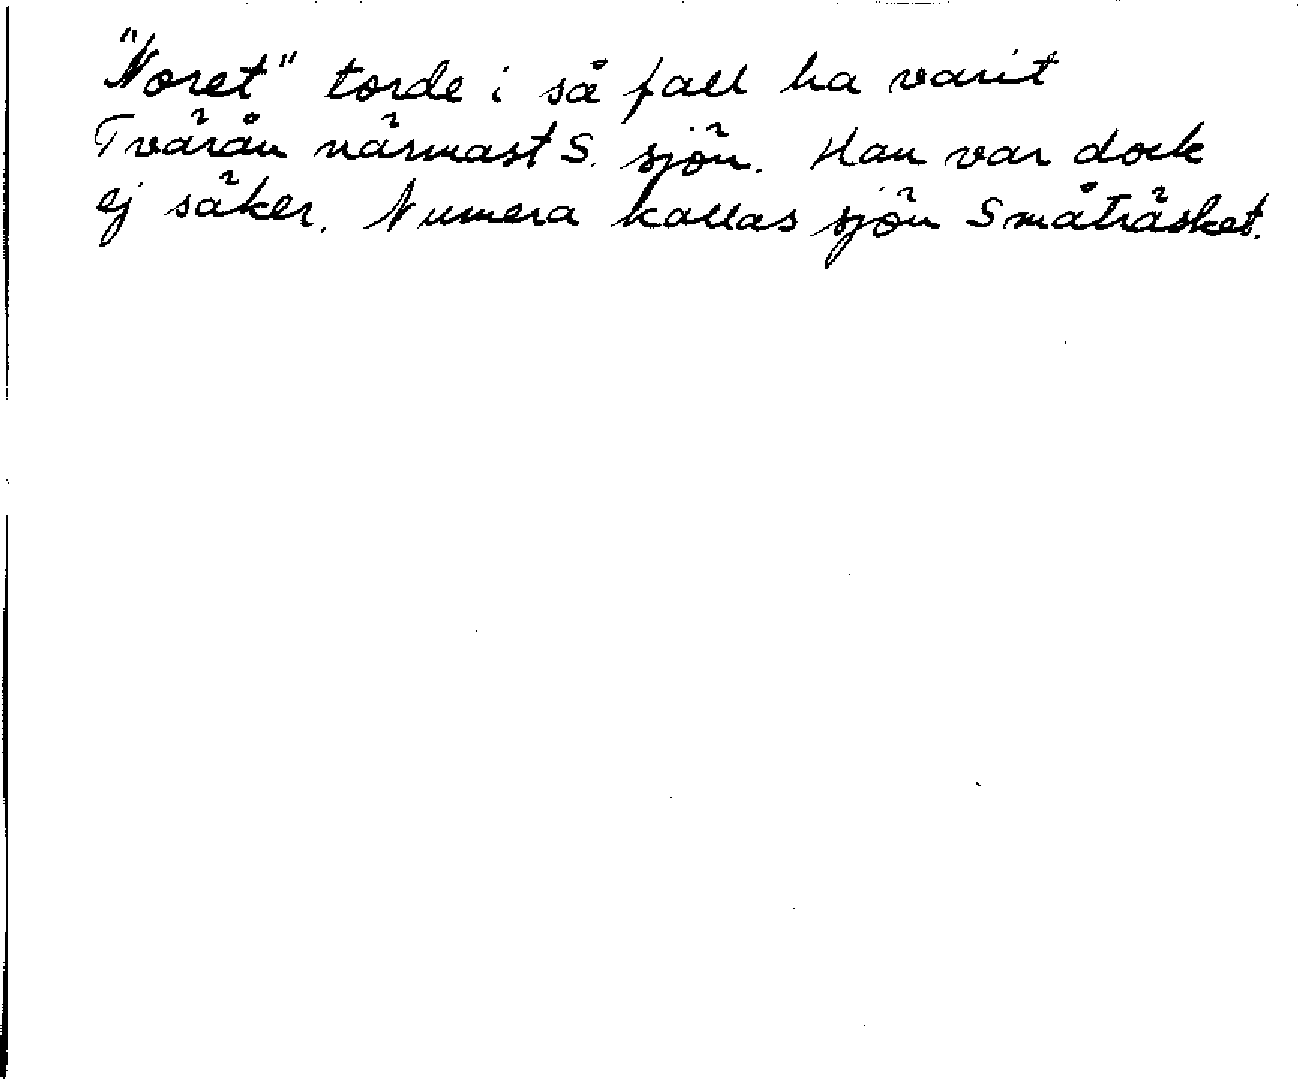 "Noret" torde i så fall ha varit
Tvärån närmast S. sjön. Han var dock
ej säker. Numera kallas sjön Småträsket.